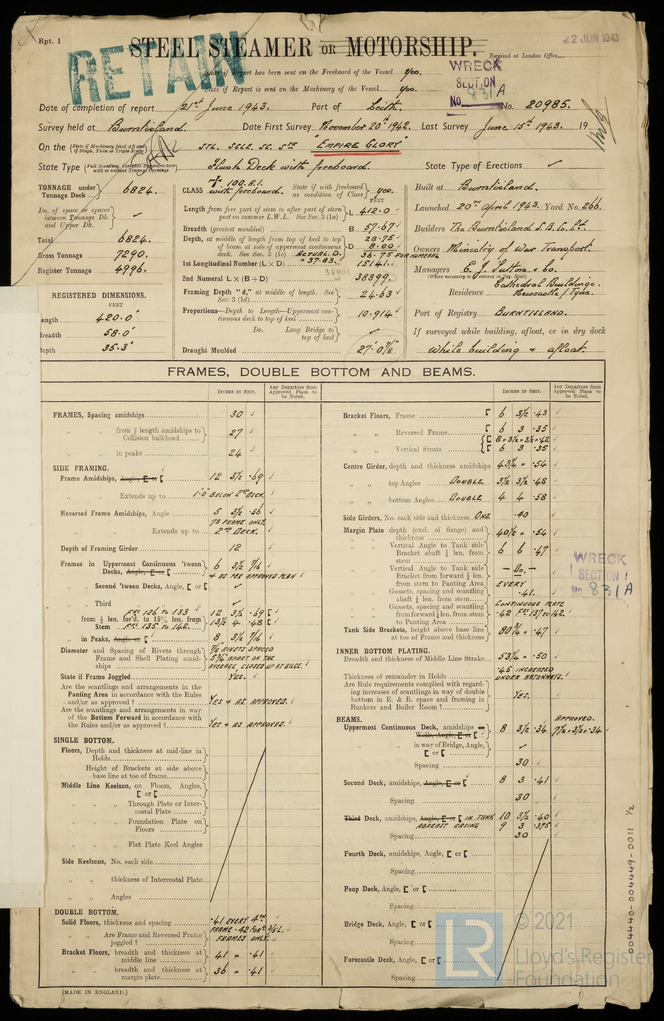 Rpt. 1
RETAIN
STEEL STEAMER OR MOTORSHIP.
22 JUN 1943
Received at London Office
WRECK
SECTION
No. 831A
of Report has been sent on the Freeboard of the Vessel Yes.
of Report is sent on the Machinery of the Vessel Yes.
Date of completion of report 21st June 1943. Port of Leith. No. 20985.
Survey held at Burntisland. Date First Survey November 20th 1942. Last Survey June 15th 1943. 19
On the "EMPIRE GLORY"
State Type Flush Deck with freeboard. State Type of Erections ✓
TONNAGE under Tonnage Deck 6824.
Do. of space or spaces between Tonnage Dk. and Upper Dk. ✓
Total 6824.
Gross Tonnage 7290.
Register Tonnage 4996.
REGISTERED DIMENSIONS.
FEET
Length 420.0'
Breadth 58.0'
Depth 35.3'
CLASS + 100.A.1. with freeboard. State if with freeboard as condition of Class Yes.
FEET
Length from fore part of stem to after part of stern post on summer L.W.L. See Sec. 3 (1a) L 412.0
Breadth (greatest moulded) B 57.67
1st Longitudinal Number (L × D)
2nd Numeral L × (B + D) 38899.
Framing Depth "d," at middle of length. See Sec. 3 (1d) 24.63
Proportions—Depth to Length—Uppermost continuous deck to top of keel 10.914
Do. Long Bridge to top of keel ✓
Draught Moulded 27'.0⅞
Built at Burntisland.
Launched 20th April 1943. Yard No. 266.
Builders The Burntisland S.B. Co. Ltd.
Owners Ministry of War Transport.
Managers E. J. Sutton & Co.
Residence Cathedral Buildings. Newcastle/Tyne.
Port of Registry BURNTISLAND.
If surveyed while building, afloat, or in dry dock
While building & afloat.
FRAMES, DOUBLE BOTTOM AND BEAMS.
INCHES IN SHIP. Any Departure from Approved Plans to be Noted.
INCHES IN SHIP. Any Departure from Approved Plans to be Noted.
FRAMES, Spacing amidships 30
" " from ⅗ length amidships to Collision bulkhead 27
" " in peaks 24
SIDE FRAMING.
Frame Amidships, 12 3½ .69
" " Extends up to 1'.0" BELOW 2ND DECK.
Reversed Frame Amidships, Angle 5 3½ .56
" " " Extends up to 2ND DECK.
Depth of Framing Girder 12
Frames in Uppermost Continuous 'tween Decks, 6 3½ 7/16
& AS PER APPROVED PLAN
" Second 'tween Decks, Angle, [ or [ ✓
" Third " " " ✓
in Peaks, 8 3½ 7/16
Diameter and Spacing of Rivets through Frame and Shell Plating amidships
State if Frame Joggled YES.
Are the scantlings and arrangements in the Panting Area in accordance with the Rules and/or as approved? YES & AS APPROVED.
Are the scantlings and arrangements in way of the Bottom Forward in accordance with the Rules and/or as approved? YES & AS APPROVED
SINGLE BOTTOM.
Floors, Depth and thickness at mid-line in Holds
" Height of Brackets at side above base line at toe of frame
Middle Line Keelson, on Floors, Angles, [ or [
" " " Through Plate or Intercostal Plate
" " " Foundation Plate on Floors
" " " Flat Plate Keel Angles
Side Keelsons, No. each side
" " thickness of Intercostal Plate
" " Angles
DOUBLE BOTTOM.
Solid Floors, thickness and spacing .41 EVERY 4TH
" " Are Frame and Reversed Frame joggled? FRAMES ONLY.
Bracket Floors, breadth and thickness at middle line 41 × .41
" " breadth and thickness at margin plate 36 × .41
Bracket Floors, Frame 6 3½ .43
" " Reversed Frame 6 3 .35
" " Vertical Struts 6 3 .35
Centre Girder, depth and thickness amidships 43¼ × .54
" " top Angles DOUBLE 3½ 3½ .48
" " bottom Angles DOUBLE 4 4 .58
Side Girders, No. each side and thickness ONE .40
Margin Plate depth (excl. of flange) and thickness 40½ × .54
" " Vertical Angle to Tank side Bracket abaft ¼ len. from stem 6 6 .47
" " Vertical Angle to Tank side Bracket from forward ¼ len. from stem to Panting Area — Do. —
" " Gussets, spacing and scantling abaft ¼ len. from stem EVERY .41.
" " Gussets, spacing and scantling from forward ¼ len. from stem to Panting Area CONTINUOUS PLATE
Tank Side Brackets, height above base line at toe of Frame and thickness 80¾ × .47
WRECK
SECTION
No. 831A
INNER BOTTOM PLATING.
Breadth and thickness of Middle Line Strake 53¼ × .50
Thickness of remainder in Holds .45 INCREASED UNDER HATCHWAYS.
Are Rule requirements complied with regarding increases of scantlings in way of double bottom in E. & B. space and framing in Bunkers and Boiler Room? YES.
BEAMS.
Uppermost Continuous Deck, amidships 8 3½ .34 APPROVED. 7½ × 3½ × .34
" " in way of Bridge, Angle, [ or [ ✓
" " Spacing 30
Second Deck, amidships, 8 3 .41
" " Spacing 30
Third Deck, amidships, IN TANK 10 3½ .40
ABREAST CASING 9 3 .375
" " Spacing 30
Fourth Deck, amidships, Angle, [ or [
" " Spacing
Poop Deck, Angle, [ or [
" " Spacing
Bridge Deck, Angle, [ or [
" " Spacing
Forecastle Deck, Angle, [ or [
" " Spacing
(MADE IN ENGLAND.)
004440-004449-0011 ½
LR
© 2021
Lloyd's Register
Foundation